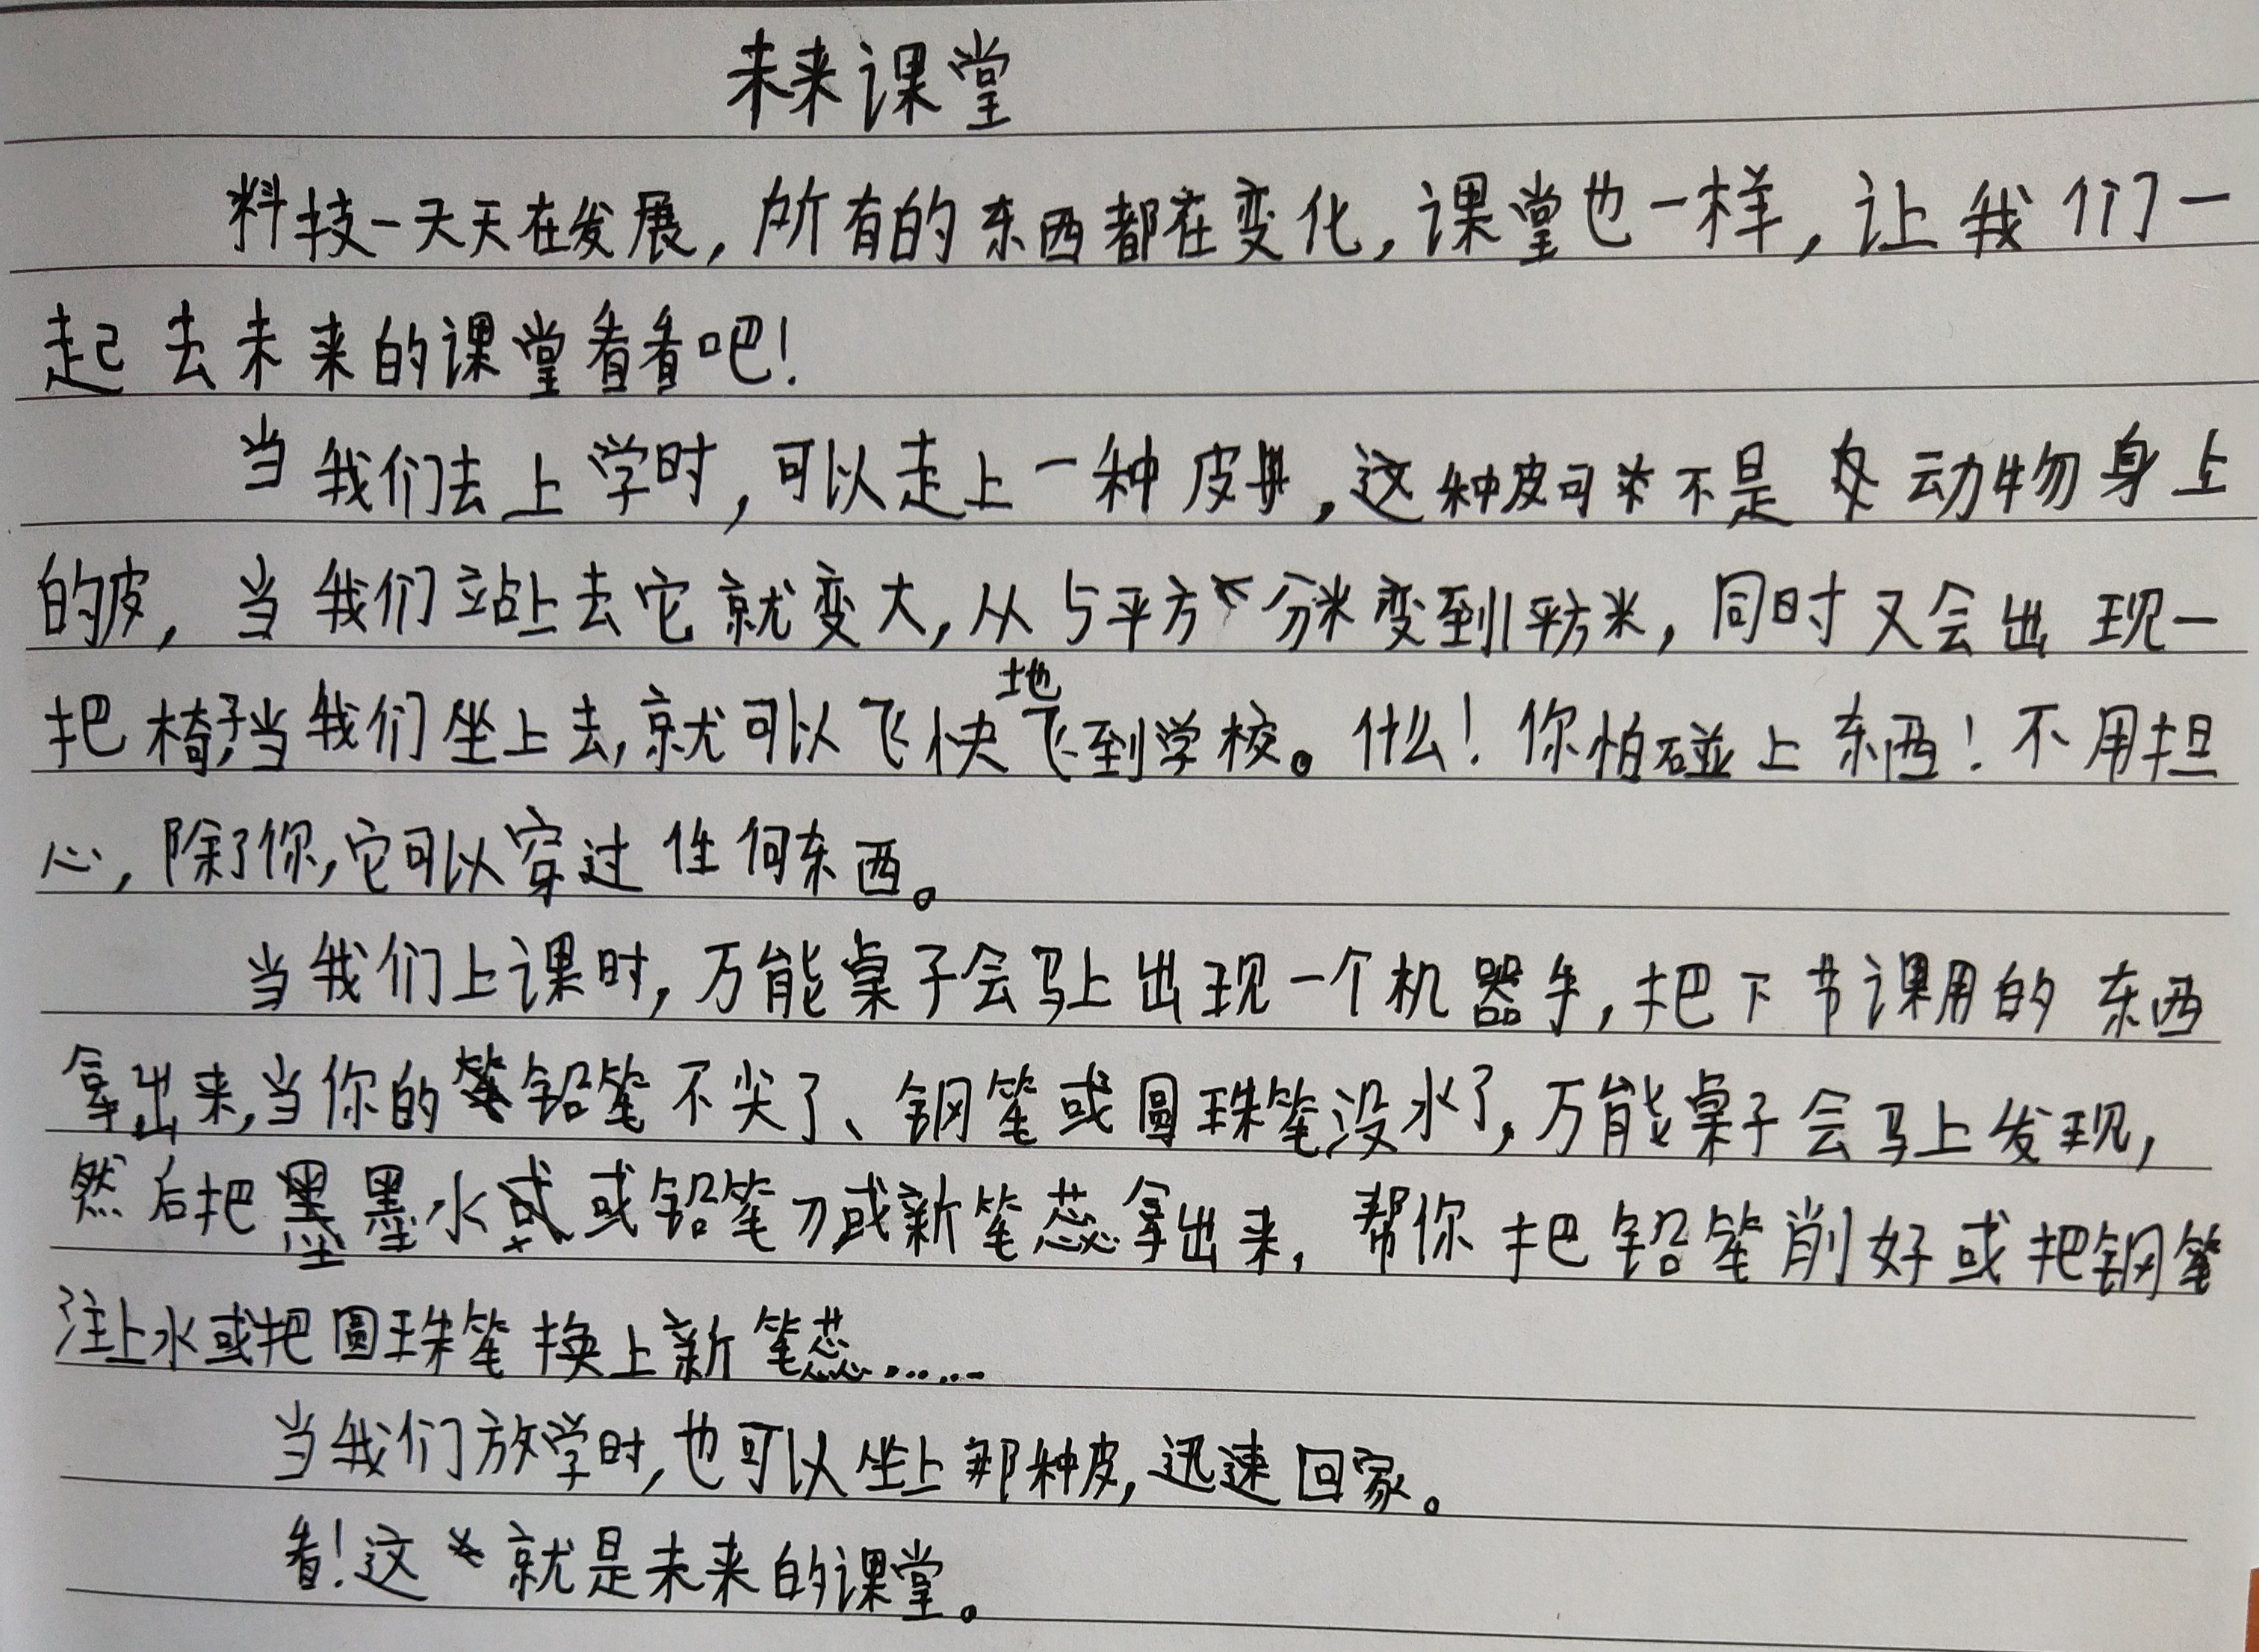 未来课堂
料技一天天在发展,所有的东西都在变化,课堂也一样,让我们一
起去未来的课堂看看吧!
当我们去上学时,可以走上一种皮,这种皮可不是动物身上
的皮,当我们站上去它就变大,从5平方分米变到1平方米,同时又会出现一
把椅子,当我们坐上去,就可以飞快地飞到学校。什么!你怕碰上东西!不用担
心,除了你,它可以穿过任何东西。
当我们上课时,万能桌子会马上出现一个机器手,把下节课用的东西
拿出来,当你的铅笔不尖了、钢笔或圆珠笔没水了,万能桌子会马上发现,
然后把墨水或铅笔刀或新笔蕊拿出来,帮你把铅笔削好或把钢笔
注上水或把圆珠笔换上新笔蕊……
当我们放学时,也可以坐上那种皮,迅速回家。
看!这就是未来的课堂。